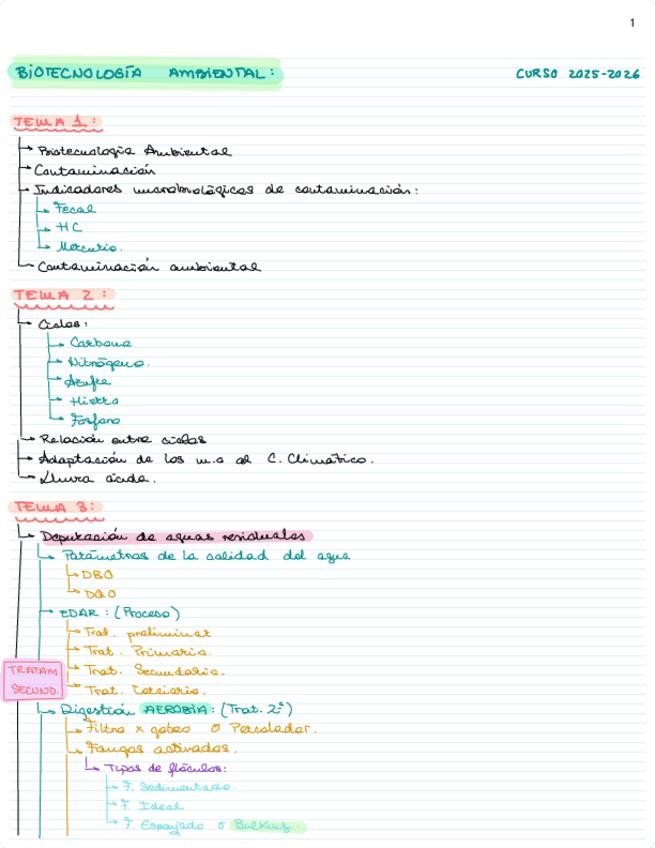 1
BIOTECNOLOGÍA AMBIENTAL:
CURSO 2025-2026
TEMA 1:
Biotecnología Ambiental
Contaminación
Indicadores microbiológicos de contaminación:
Fecal
HC
Mercurio.
Contaminación ambiental
TEMA 2:
Ciclos:
Carbono
Nitrógeno.
Azufre
Hierro
Fósforo
Relación entre ciclos
Adaptación de los m.o al C. Climático.
Lluvia ácida.
TEMA 3:
Depuración de aguas residuales
Parámetros de la calidad del agua
DBO
DQO
EDAR: (Proceso)
Trat. preliminar
Trat. Primario.
TRATAM
SECUND.
Trat. Secundario.
Trat. Terciario.
Digestión AEROBIA: (Trat. 2º)
Filtro x goteo o Percolador.
Fangos activados.
Tipos de flóculos:
F. Sedimentado.
F. Ideal
F. Esponjado o Bulking.